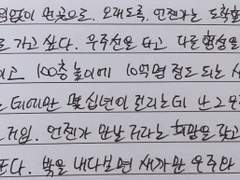 없이 먼곳으로. 오래도록. 언젠가는 도착할
로 가고 싶다. 우주선을 타고 다른 행성을
이고 100층 높이에 10억명 정도 되는 사
는데에만 몇십년이 걸리는데 난 그 우
거임. 언젠가 만날거라는 희망을 갖고
른다. 밖을 내다보면 새까만 우주와